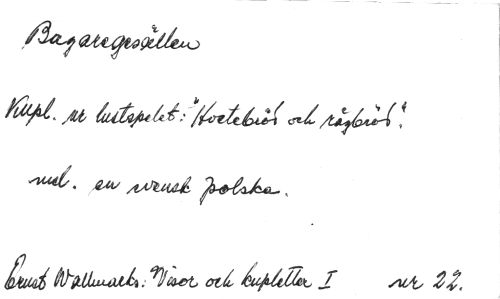 Bagaregesällen
Kupl. ur lustspelet: "Hvetebröd och rågbröd".
mel. en svensk polska.
Ernst Wallmarks: Visor och kupletter I nr 22.